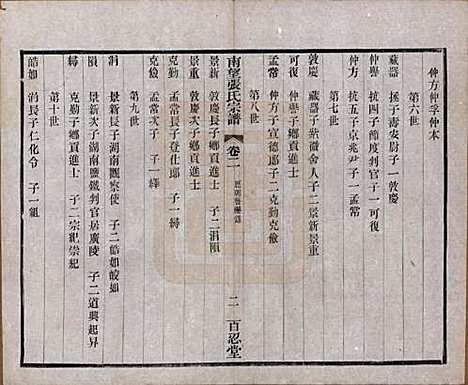 仲方仲孚仲本
第六世
藏器 拯子壽安尉子一敦慶
仲譽 抗四子節度判官子一可復
仲方 抗五子京兆尹子一孟常
第七世
敦慶 藏器子紫薇舍人子二景新景重
可復 仲譽子鄉貢進士
孟常 仲方子宣德郎子二克勤克儉
第八世
南望張氏宗譜 卷二 二 百忍堂
景新 敦慶長子鄉貢進士 子二涓
景重 敦慶次子鄉貢進士
克勤 孟常長子登仕郎 子一緙
克儉 孟常次子 子一繹
第九世
涓 景新長子湖南觀察使 子二皓如皎如
景新次子湖南鹽鐵判官居廣陵 子二道興起昇
克勤子鄉貢進士 子二宗紀崇紀
第十世
皓如 涓長子仁化令 子一組